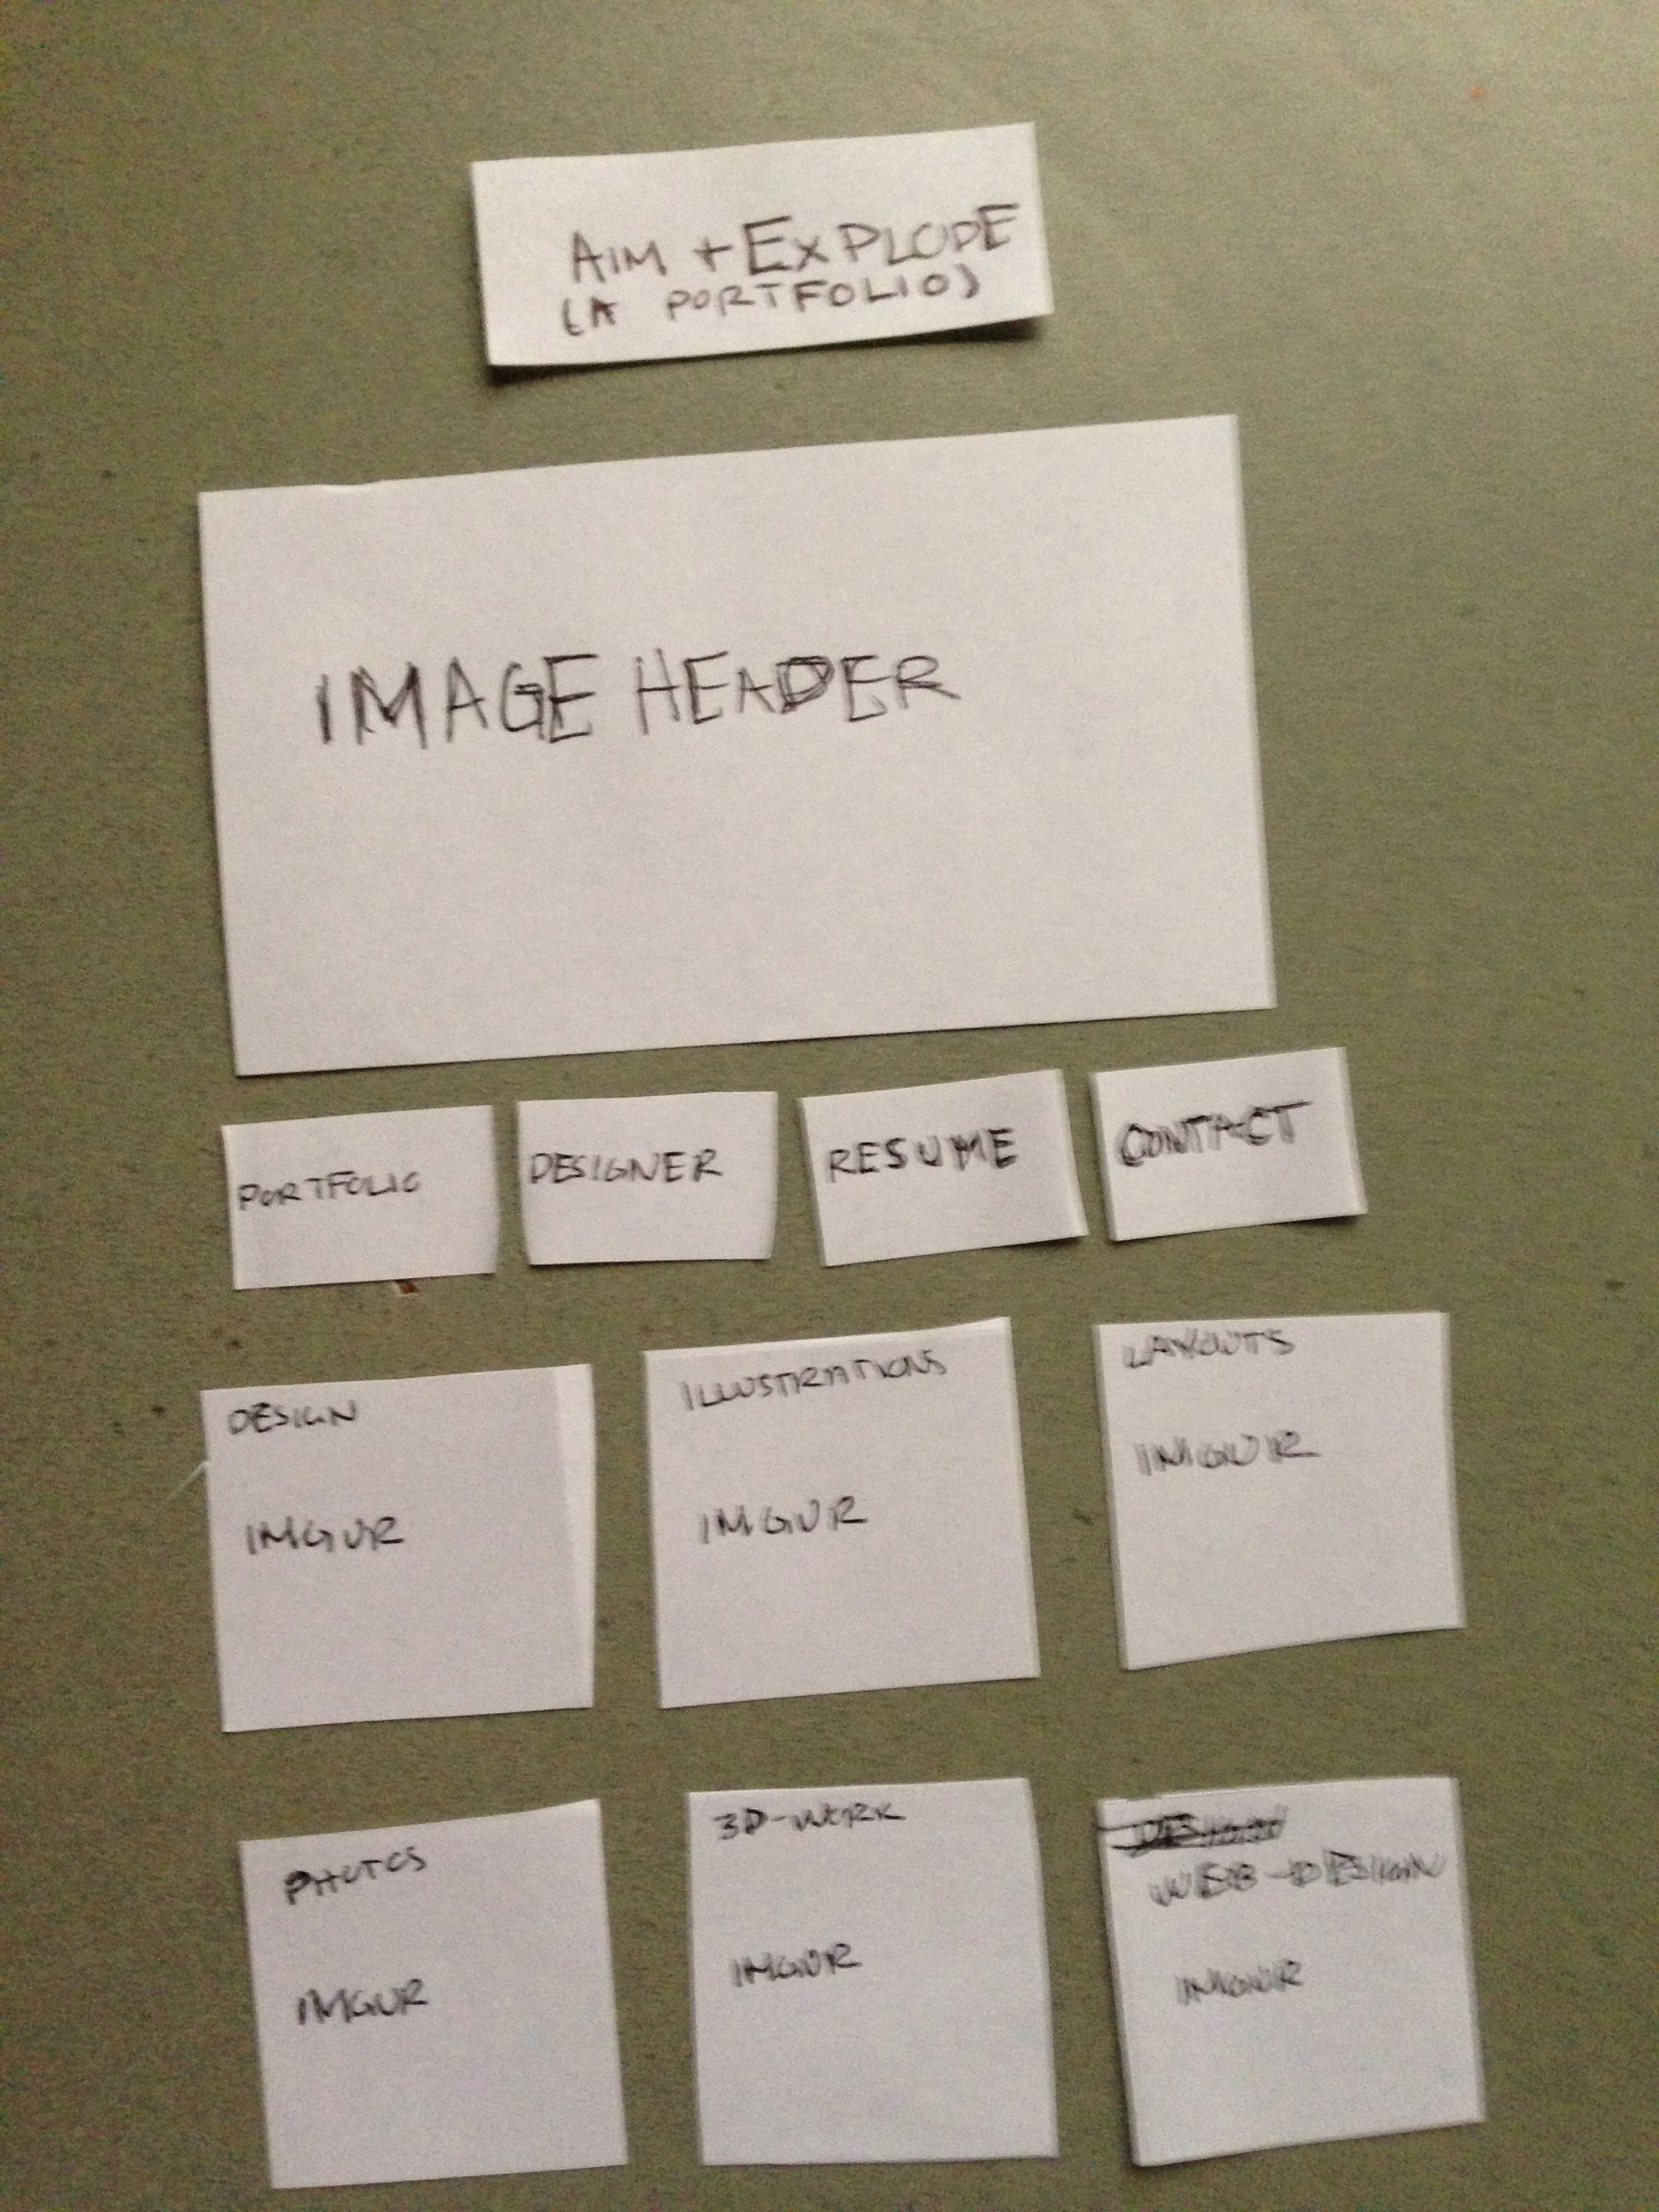 AIM + EXPLODE
(A PORTFOLIO)
IMAGE HEADER
PORTFOLIO
DESIGNER
RESUME
CONTACT
DESIGN
IMGUR
ILLUSTRATIONS
IMGUR
LAYOUTS
IMGUR
PHOTOS
IMGUR
3D-WORK
IMGUR
WEB-DESIGN
IMGUR